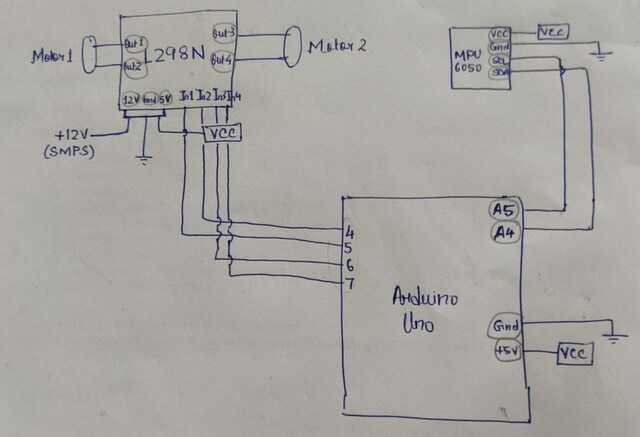 Motor 1
Out1
Out2
L298N
Out3
Out4
Motor 2
12V Gnd 5V
In1 In2 In3 In4
+12V
(SMPS)
VCC
MPU
6050
VCC
Gnd
SCL
SDA
VCC
A5
A4
4
5
6
7
Arduino
Uno
Gnd
+5V
VCC